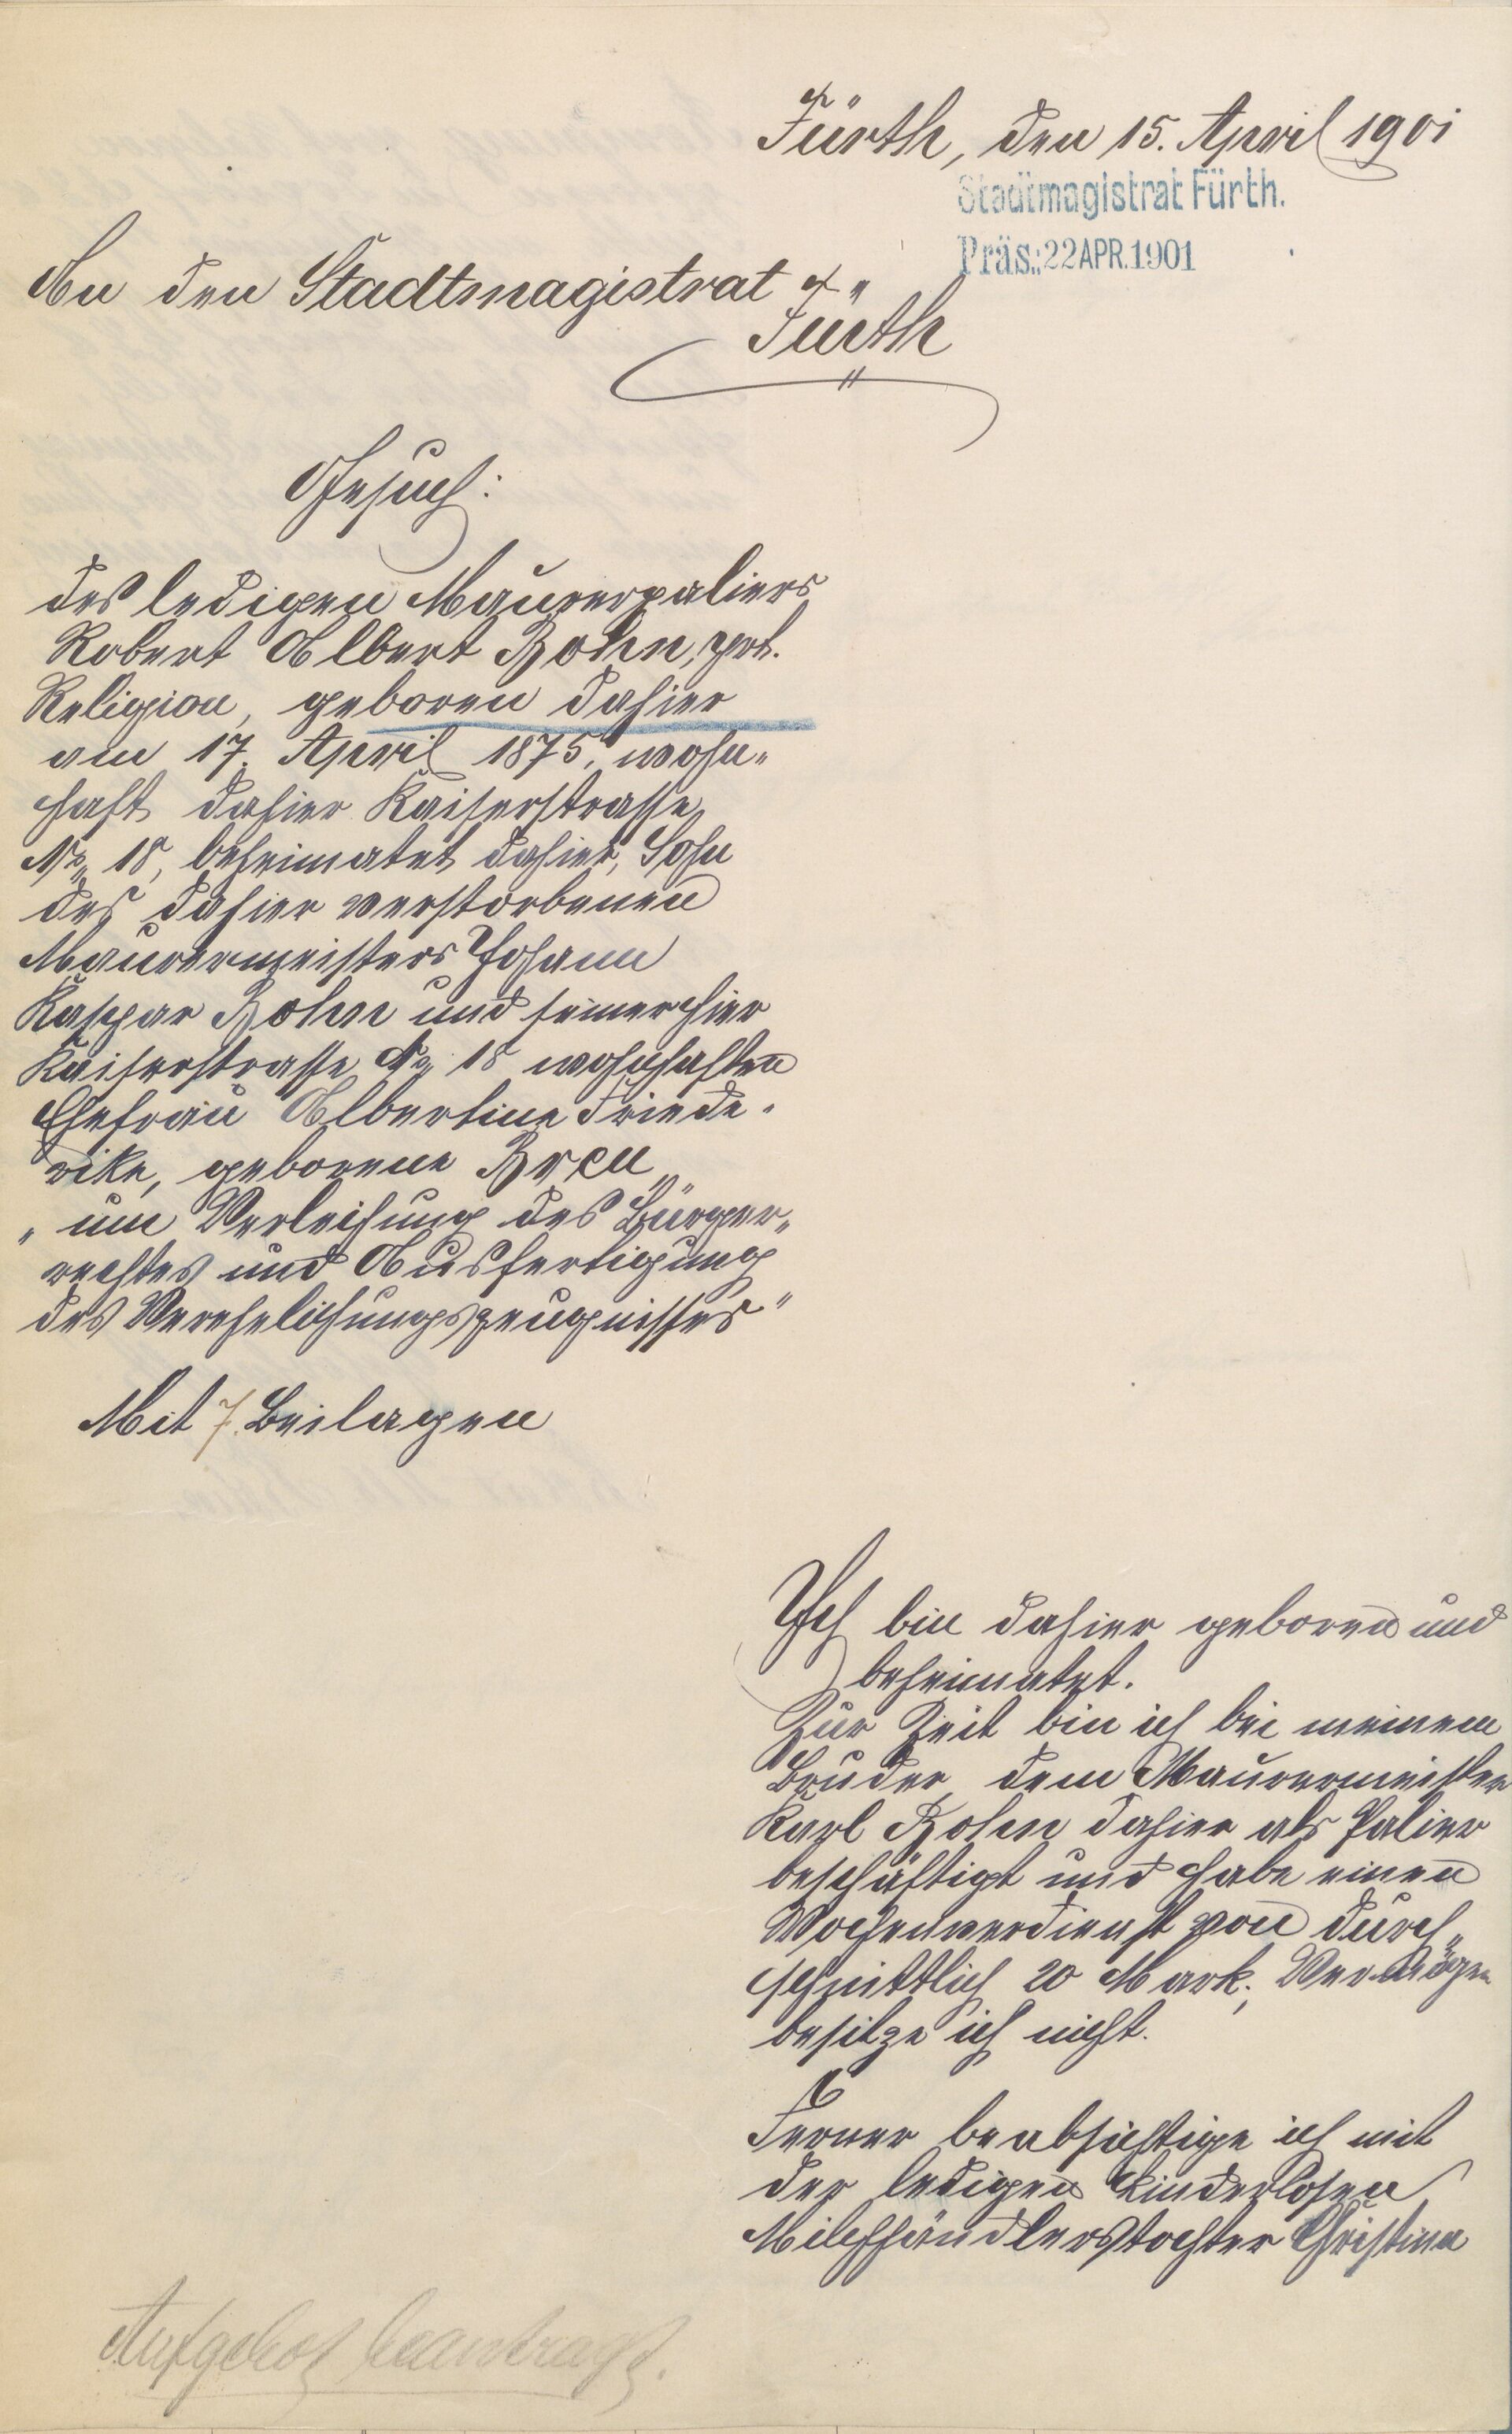 Fürth, den 15. April 1901
Stadtmagistrat Fürth.
Präs.: 22 APR. 1901
An den Stadtmagistrat
Fürth
Gesuch:
des ledigen Maurerpaliers
Robert Albert Bohn, prt.
Religion, geboren dahier
am 17. April 1875, wohn„
haft dahier Kaiserstrasse
No 18, beheimatet dahier, Sohn
des dahier verstorbenen
Maurermeisters Johann
Kaspar Bohn und seiner hier
Kaiserstrasse No 18 wohnhaften
Ehefrau Albertine Friede„
rike, geborene Breu
„um Verleihung des Bürger„
rechtes und Ausfertigung
des Verehelichungszeugnisses"
Mit 7 Beilagen
Ich bin dahier geboren und
beheimatet.
Zur Zeit bin ich bei meinem
Bruder, dem Maurermeister
Karl Bohn dahier als Palier
beschäftigt und habe einen
Wochenverdienst von durch„
schnittlich 20 Mark; Vermögen
besitze ich nicht.
Ferner beabsichtige ich mit
der ledigen kinderlosen
Milchhändlerstochter Christina
Aufgebot beantragt.